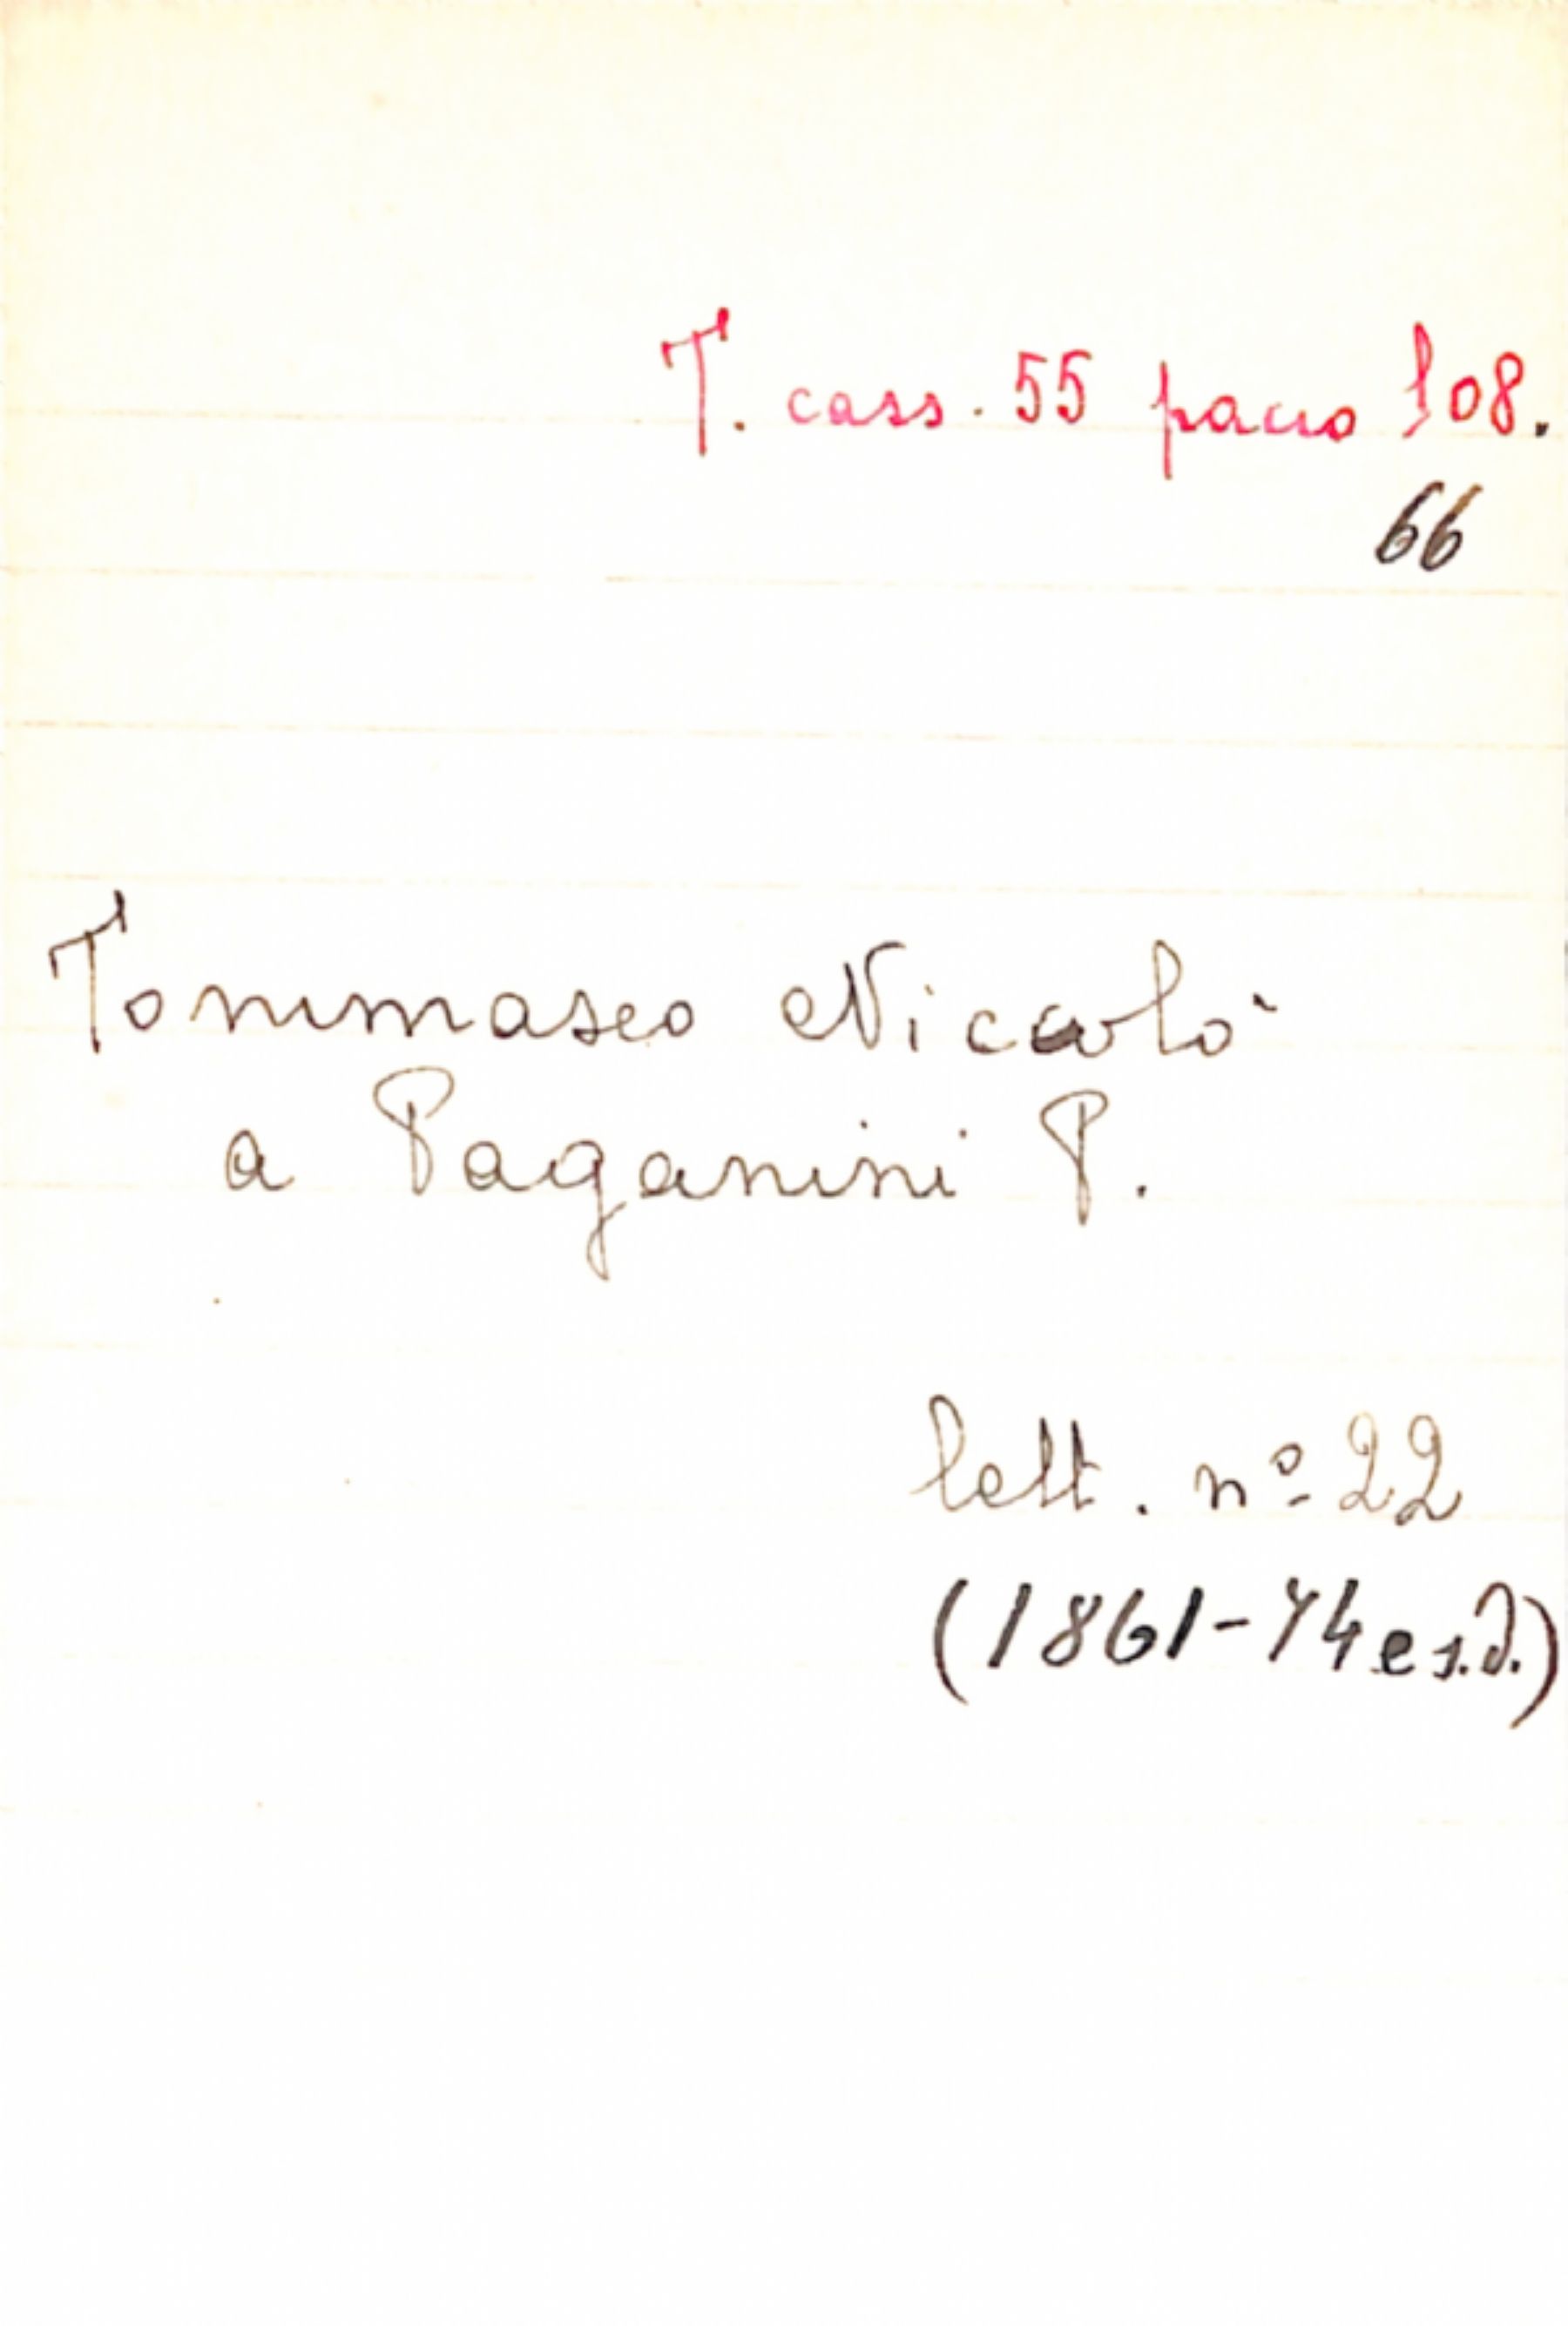 T. cass. 55 pacco 108.
66
Tommaseo Nicolò
a Paganini P.
lett. nº 22
(1861-74 e s.d.)